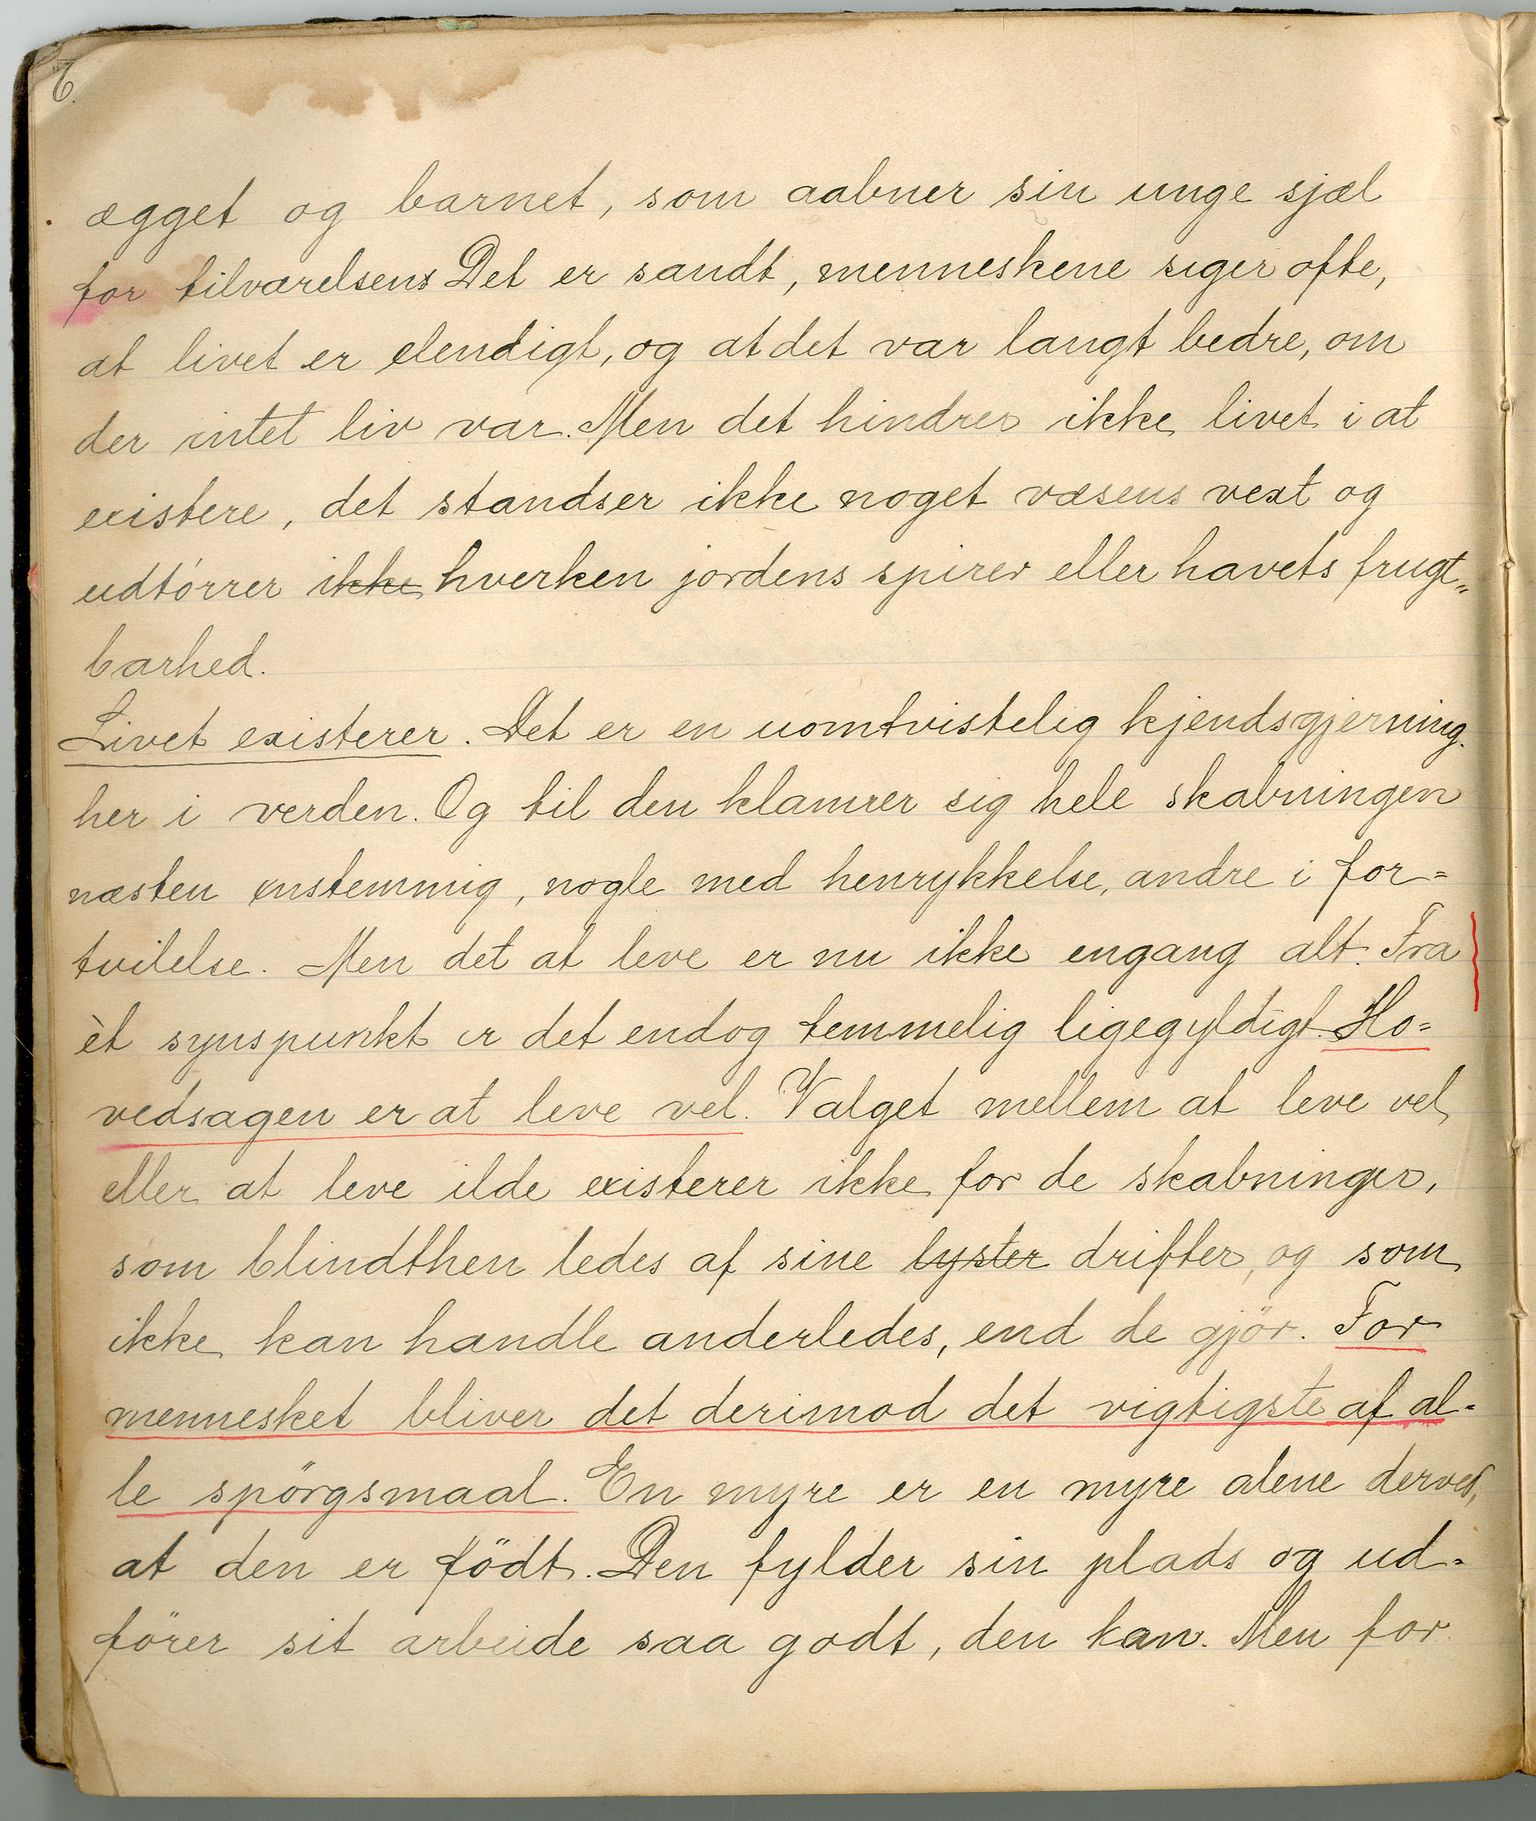 6.
ægget og barnet, som aabner sin unge sjæl
for tilværelsens Det er sandt, menneskene siger ofte,
at livet er elendigt, og at det var langt bedre, om
der intet liv var. Men det hindrer ikke livet i at
existere, det standser ikke noget væsens vext og
udtörrer ikke hverken jordens spirer eller havets frugt„
barhed.
Livet existerer. Det er en uomtvistelig kjendsgjerning
her i verden. Og til den klamrer sig hele skabningen
næsten enstemmig, nogle med henrykkelse, andre i for=
tvilelse. Men det at leve er nu ikke engang alt. Fra
èt synspunkt er det endog temmelig ligegyldigt. Ho=
vedsagen er at leve vel. Valget mellem at leve vel
eller at leve ilde existerer ikke for de skabninger,
som blindthen ledes af sine lyster drifter, og som
ikke kan handle anderledes, end de gjör. For
mennesket bliver det derimod det vigtigste af al=
le spörgsmaal. En myre er en myre alene derved,
at den er födt. Den fylder sin plads og ud=
förer sit arbeide saa godt, den kan. Men for